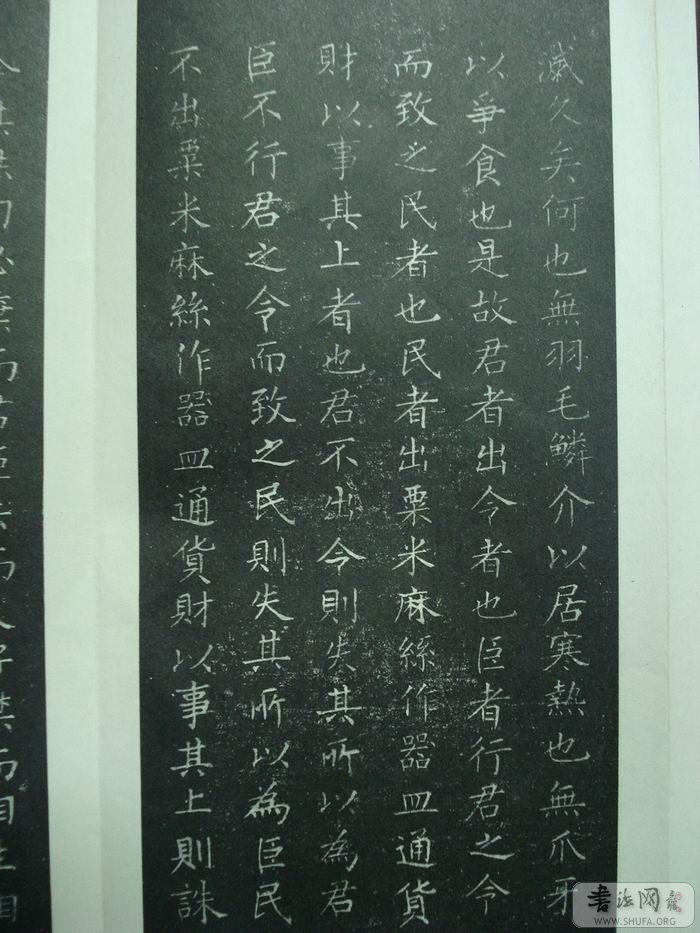 滅久矣何也無羽毛鱗介以居寒熱也無爪牙
以爭食也是故君者出令者也臣者行君之令
而致之民者也民者出粟米麻絲作器皿通貨
財以事其上者也君不出令則失其所以為君
臣不行君之令而致之民則失其所以為臣民
不出粟米麻絲作器皿通貨財以事其上則誅
必棄而君臣去而父子禁而相生
書法网
WWW.SHUFA.ORG